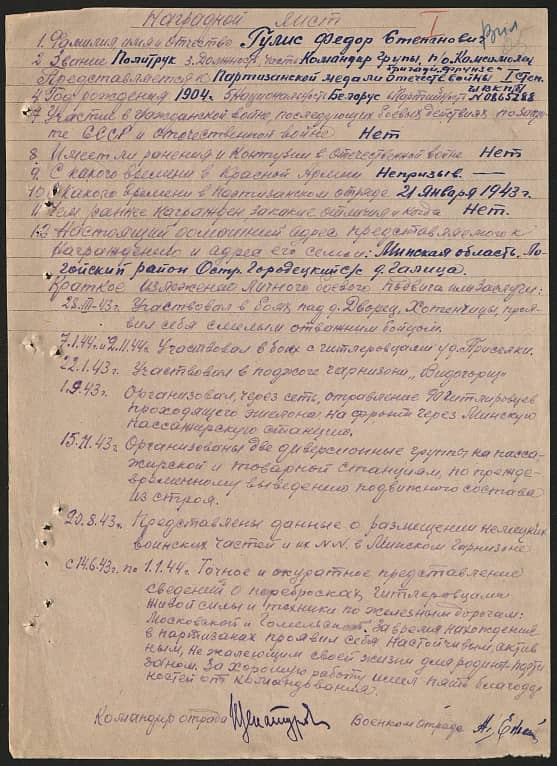 Наградной лист
1. Фамилия имя и отчество Гулис Федор Степанович
2. Звание Политрук 3. Должность, часть Командир групы, п/о. Комсомолец
бригады „Фрунзе"
Представляется к Партизанской медали отечеств войны I степ.
4. Год рождения 1904. 5 Национальность Белорус 6 Партийность ч ВКП/б/ № 0865288
7. Участие в гражданской войне, последующих боевых действиях по защи-
те СССР и отечественной войне Нет
8. Имеет ли ранения и контузии в отечественной войне Нет
9. С какого времени в Красной Армии Непризыв. —
10. С какого времени в партизанском отряде 21 января 1943 г.
11. Чем ранее награжден за какие отличия и когда Нет.
12. Настоящий домашний адрес представляемого к
награждению и адрес его семьи: Минская область, Ло-
гойский район Остр. Городецкий с/с д. Галица.
Краткое изложение личного боевого подвига или заслуги:
28.III-43 г. Участвовал в боях под д. Дворец, Хотенчицы, проя-
вил себя смелым отважным бойцом.
7.1.44 г. и 2.11.44 г. Участвовал в боях с гитлеровцами у д.
22.1.43 г. Участвовал в поджоге гарнизона
1.9.43 г. Организовал, через сеть, отравление 90 гитлеровцев
проходящего эшелона на фронт через Минскую
пассажирскую станцию.
15.11.43 г. Организованы две диверсионные группы на пасса-
жирской и товарной станциям, по прежде-
временному выведению подвижного состава
из строя.
20.8.43 г. Представлены данные о размещении немецких
воинских частей и их N.N. в Минском гарнизоне
с 14.6.43 г. по 1.1.44 г. Точное и акуратное представление
сведений о перебросках гитлеровцами
живой силы и техники по железным дорогам:
Московской и Гомельской. За время нахождения
в партизанах проявил себя настойчивым, актив-
ным, не жалеющим своей жизни для родины парти-
заном. За хорошую работу имел пять благодар-
ностей от командования.
Командир отряда Военком отряда